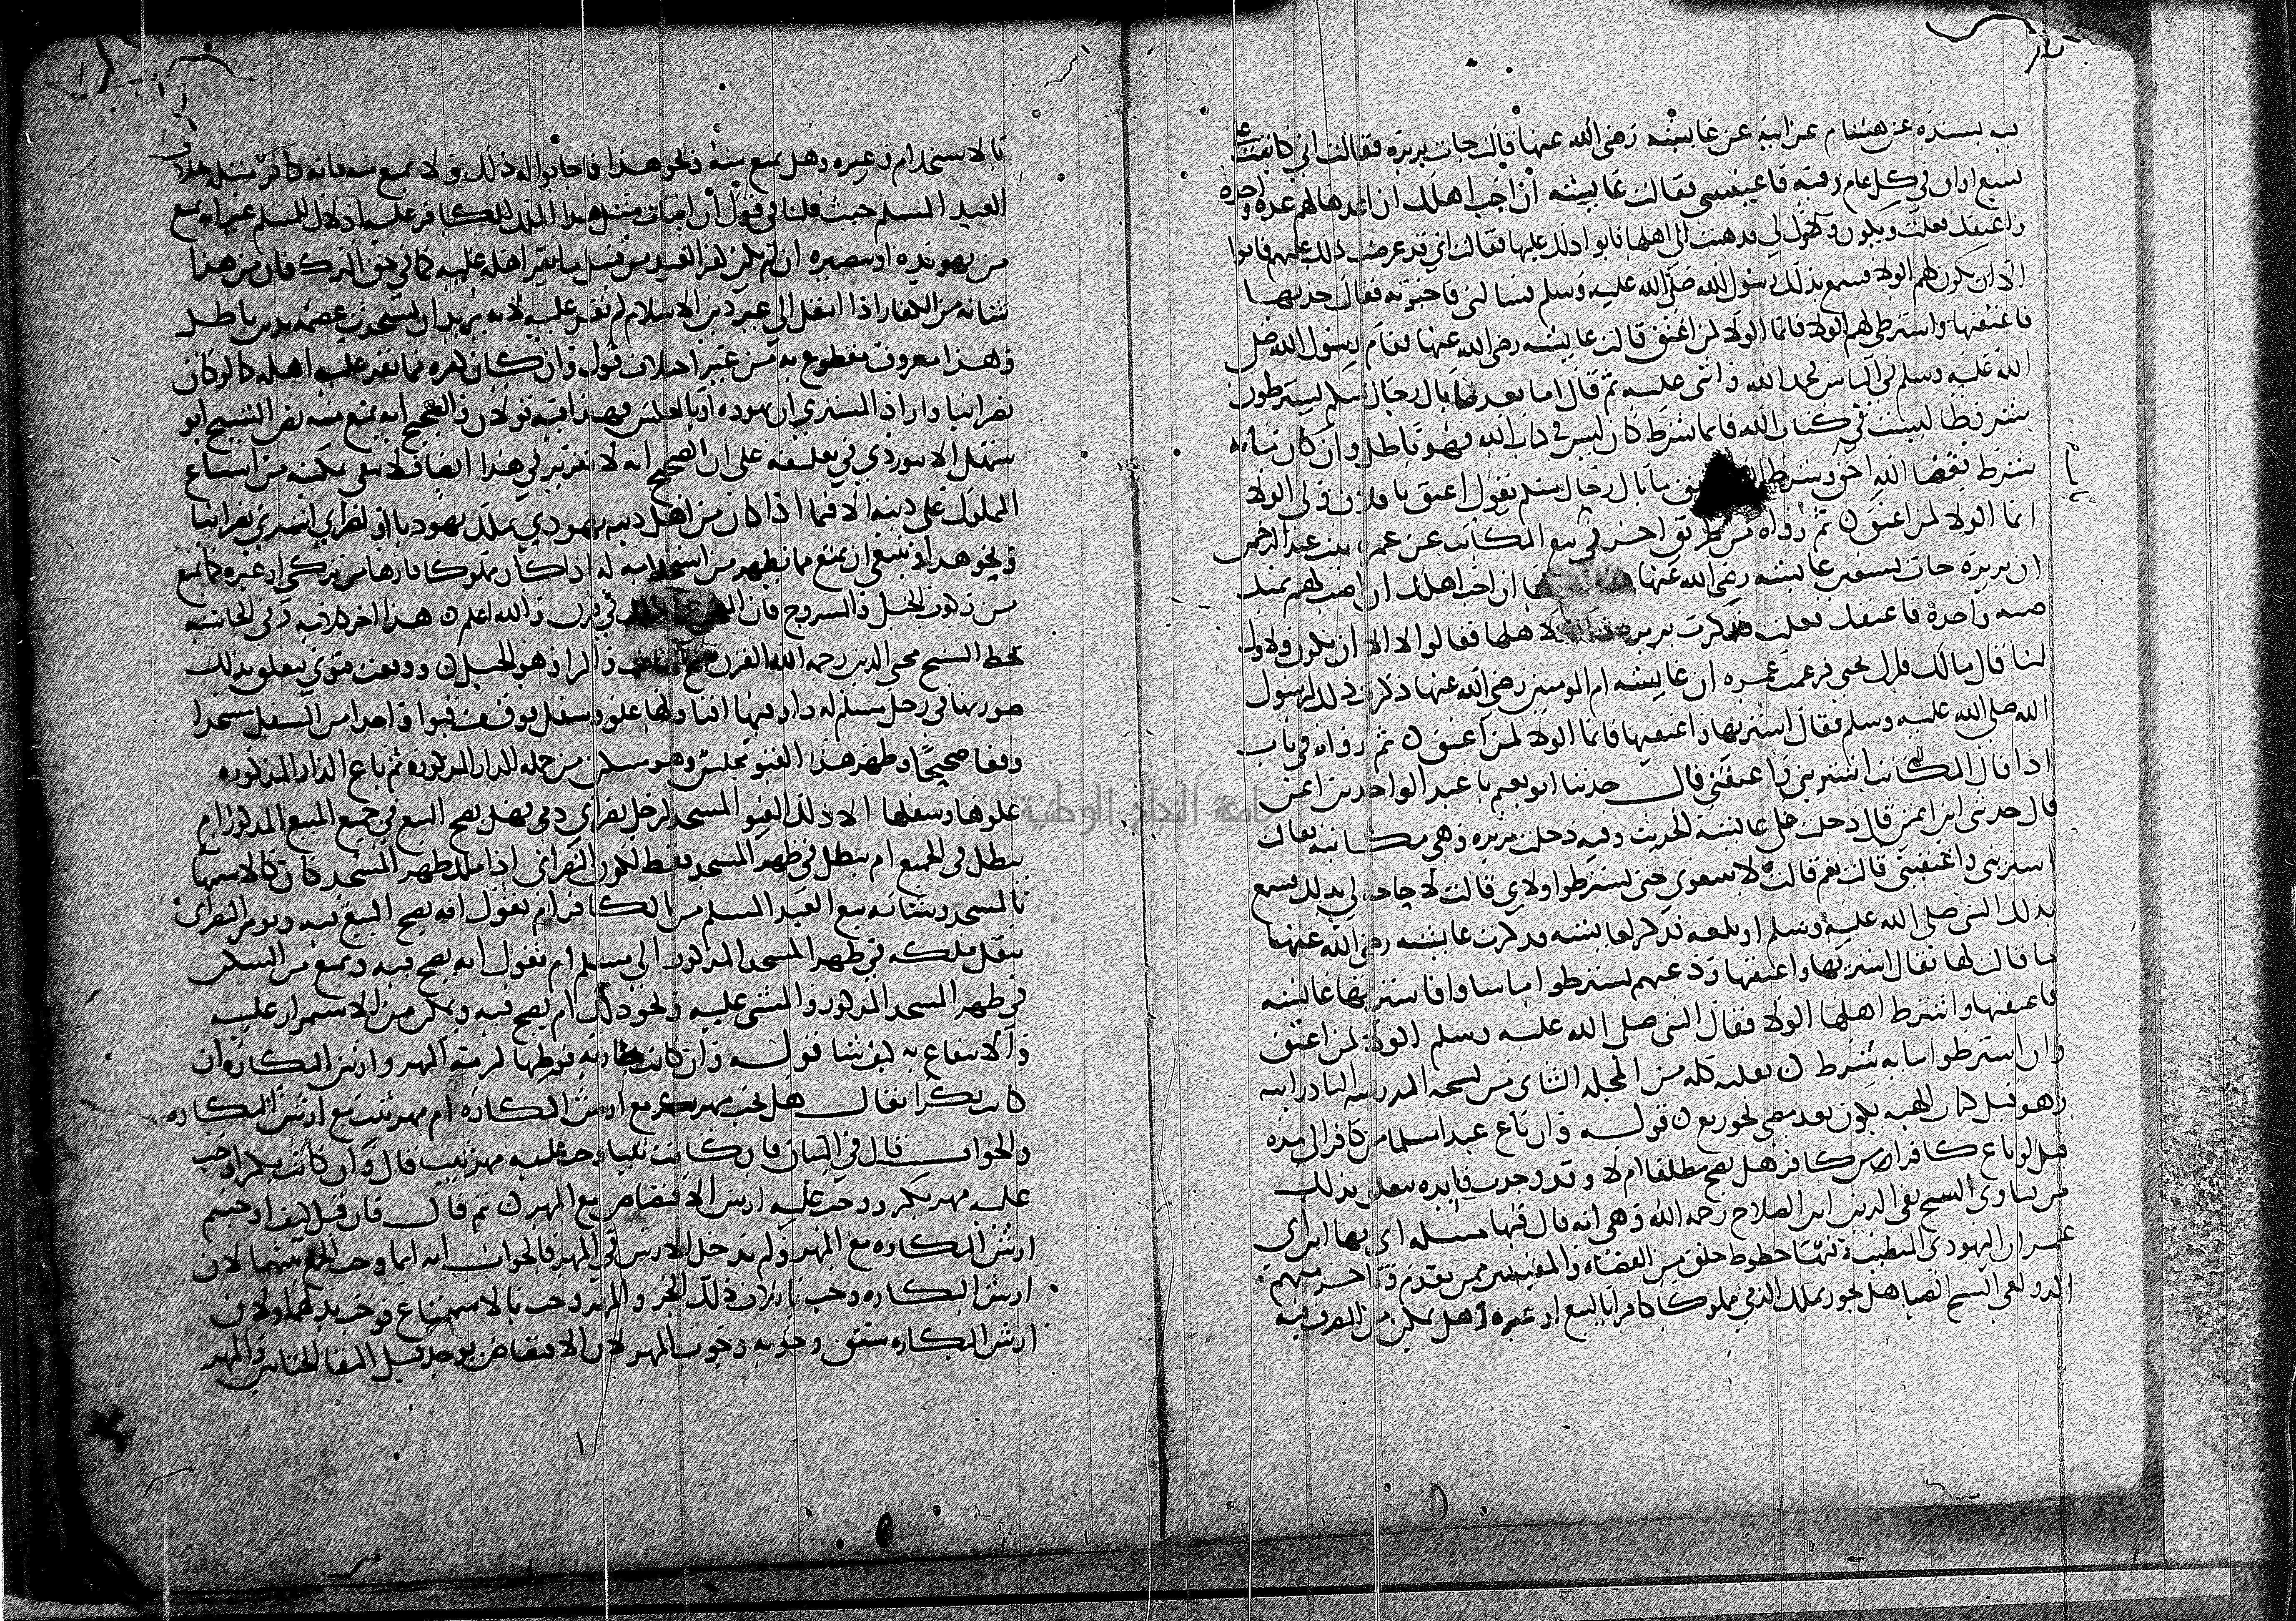 به بسنده عن هشام عن ابيه عن عايشه رضي الله عنها قالت جات بريره فقالت اني كاتبت على
تسع اواق في كل عام وقيه فاعينيني فقالت عايشه ان احب اهلك ان اعدها لهم عده واحده
واعتقك فعلت ويكون ولاؤك لي فذهبت الى اهلها فابوا ذلك عليها فقالت اني قد عرضت ذلك عليهم فابوا
الا ان يكون لهم الولا فسمع بذلك رسول الله صلى الله عليه وسلم فسالني فاخبرته فقال خذيها
فاعتقيها واشترطي لهم الولا فانما الولا لمن اعتق قالت عايشه رضي الله عنها فقام رسول الله صلى
الله عليه وسلم في الناس فحمد الله واثنى عليه ثم قال اما بعد ما بال رجال منكم يشترطون
شروطا ليست في كتاب الله فايما شرط كان ليس في كتاب الله فهو باطل وان كان مايه
شرط فقضا الله احق وشرط ما بال رجال منكم يقول اعتق يا فلان ولي الولا
انما الولا لمن اعتق ثم رواه من طريق اخر في بيع المكاتب عن عمره بنت عبد الرحمن
ان بريره جات تستعين عايشه رضي الله عنها ان احب اهلك ان اصب لهم ثمنك
صبه واحده فاعتقك فعلت فذكرت بريره لاهلها فقالوا لا الا ان يكون ولاوك
لنا قال مالك قال يحيى فزعمت عمره ان عايشه ام المومنين رضي الله عنها ذكرت ذلك لرسول
الله صلى الله عليه وسلم فقال اشتريها واعتقيها فانما الولا لمن اعتق ثم رواه في باب
اذا قال المكاتب اشتريني واعتقني قال حدثنا ابو نعيم نا عبد الواحد بن ايمن
قال حدثني ابي ايمن قال دخلت على عايشه الحديث وفيه دخلت بريره وهي مكاتبه فقالت
اشتريني واعتقيني قالت نعم قالت لا يبيعوني حتى يشترطوا ولاي قالت لا حاجه لي بذلك فسمع
بذلك النبي صلى الله عليه وسلم او بلغه فذكر لعايشه فذكرت عايشه رضي الله عنها
ما قالت لها فقال اشتريها واعتقيها ودعيهم يشترطوا ما شاوا فاشترتها عايشه
فاعتقتها واشترط اهلها الولا فقال النبي صلى الله عليه وسلم الولا لمن اعتق
وان اشترطوا مايه شرط نقلته كله من المجلد الثاني من نسخه المدرسه البادرايه
وهو قبل كتاب الهبه يكون بعد مضي نحو ربع قوله وان باع عبدا مسلما من كافر الى
قيل لو باع كافرا من كافر هل يصح مطلقا ام لا وقد وجدت فايده تتعلق بذلك
من فتاوى الشيخ تقي الدين ابن الصلاح رحمه الله وهي انه قال فيها مساله اتي بها ابراي
عمران اليهودي المتطبب فيها خطوط خلق من القضاه والمفتيين ممن تقدم
الدولعي الشيخ الضيا هل يجوز تملك الذمي مملوكا كافرا بالبيع او غيره وهل يمكن من التصرف فيه
بالاستخدام وغيره وهل يمنع منه ونحو هذا فاجابوا له ذلك ولا يمنع منه فانه كافر مثله خلاف
العبد المسلم حيث قلنا في قول ان اثبات مثل هذا الملك للكافر عليه اذلال للمسلم غير انه يمنع
من تهويده او تنصيره ان لم يكن هذا العبد من قبل ما يقر اهله عليه كما في حق الترك فان من هذا
شانه من الكفار اذا انتقل الى غير دين الاسلام لم نقر عليه لانه يريد ان يستحدث عصمه بدين باطل
وهذا معروف مقطوع به من غير اختلاف قول وان كان كفره مما نقر عليه اهله كما لو كان
نصرانيا واراد المشتري ان يهوده او بالعكس فهذا فيه قولان والصحيح انه يمنع منه نص الشيخ ابو
سهل الابيوردي في تعليقه على ان الصحيح انه لا تقرير في هذا ايضا فلا يبقى يمكنه من اتباع
المملوك على دينه الا فيما اذا كان من اهل دينه يهودي يملك يهوديا او نصراني اشترى نصرانيا
ونحو هذا وينبغي ان يمنع مما يظهر من استخدامه له اذا كان مملوكا فارها من تركي او غيره كما يمنع
من ركوب الخيل والسروج فان والله اعلم هذا اخر كلامه وفي الحاشيه
بخط الشيخ محيي الدين رحمه الله والمراد هو الخيل ووقعت فتوى يتعلق بذلك
صورتها في رجل مسلم له دار فيها اقبا ولها علو وسفل فوقف قبوا واحدا من السفل مسجدا
وقفا صحيحا وظهر هذا القبو مجلس وهو سكن من جمله الدار المذكوره ثم باع الدار المذكوره
علوها وسفلها الا ذلك القبو المسجد لرجل نصراني ذمي فهل يصح البيع في جميع المبيع المذكور ام
يبطل في الجميع ام يبطل في ظهر المسجد فقط لكون النصراني اذا ملك ظهر المسجد كان كالاستهانه
بالمسجد وشابه بيع العبد المسلم من الكافر ام تقول انه يصح البيع فيه ويومر النصراني
بنقل ملكه في ظهر المسجد المذكور الى مسلم ام تقول انه يصح فيه ويمنع من السكنى
في ظهر المسجد المذكور والمشي عليه ونحو ذلك ام يصح فيه ويمكن من الاستمرار عليه
والانتفاع به كيف شا قوله وان كانت جاريه فوطيها لزمه المهر وارش البكاره ان
كانت بكرا يقال هل يجب مهر بكر مع ارش البكاره ام مهر ثيب مع ارش البكاره
والجواب قال في البيان فان كانت ثيبا وجب عليه مهر ثيب قال وان كانت بكرا وجب
عليه مهر بكر ووجب عليه ارش الافتضاض مع المهر ثم قال فان قيل كيف اوجبتم
ارش البكاره مع المهر ولم تدخل الارش في المهر فالجواب انه انما وجب الجمع بينهما لان
ارش البكاره وجب باتلاف ذلك الجزو والمهر وجب بالاستمتاع فوجب بدلهما ولان
ارش البكاره سبق وجوبه وجوب المهر لان الافتضاض يوجد قبل التقا الختانين والمهر
جامعة النجاح الوطنية